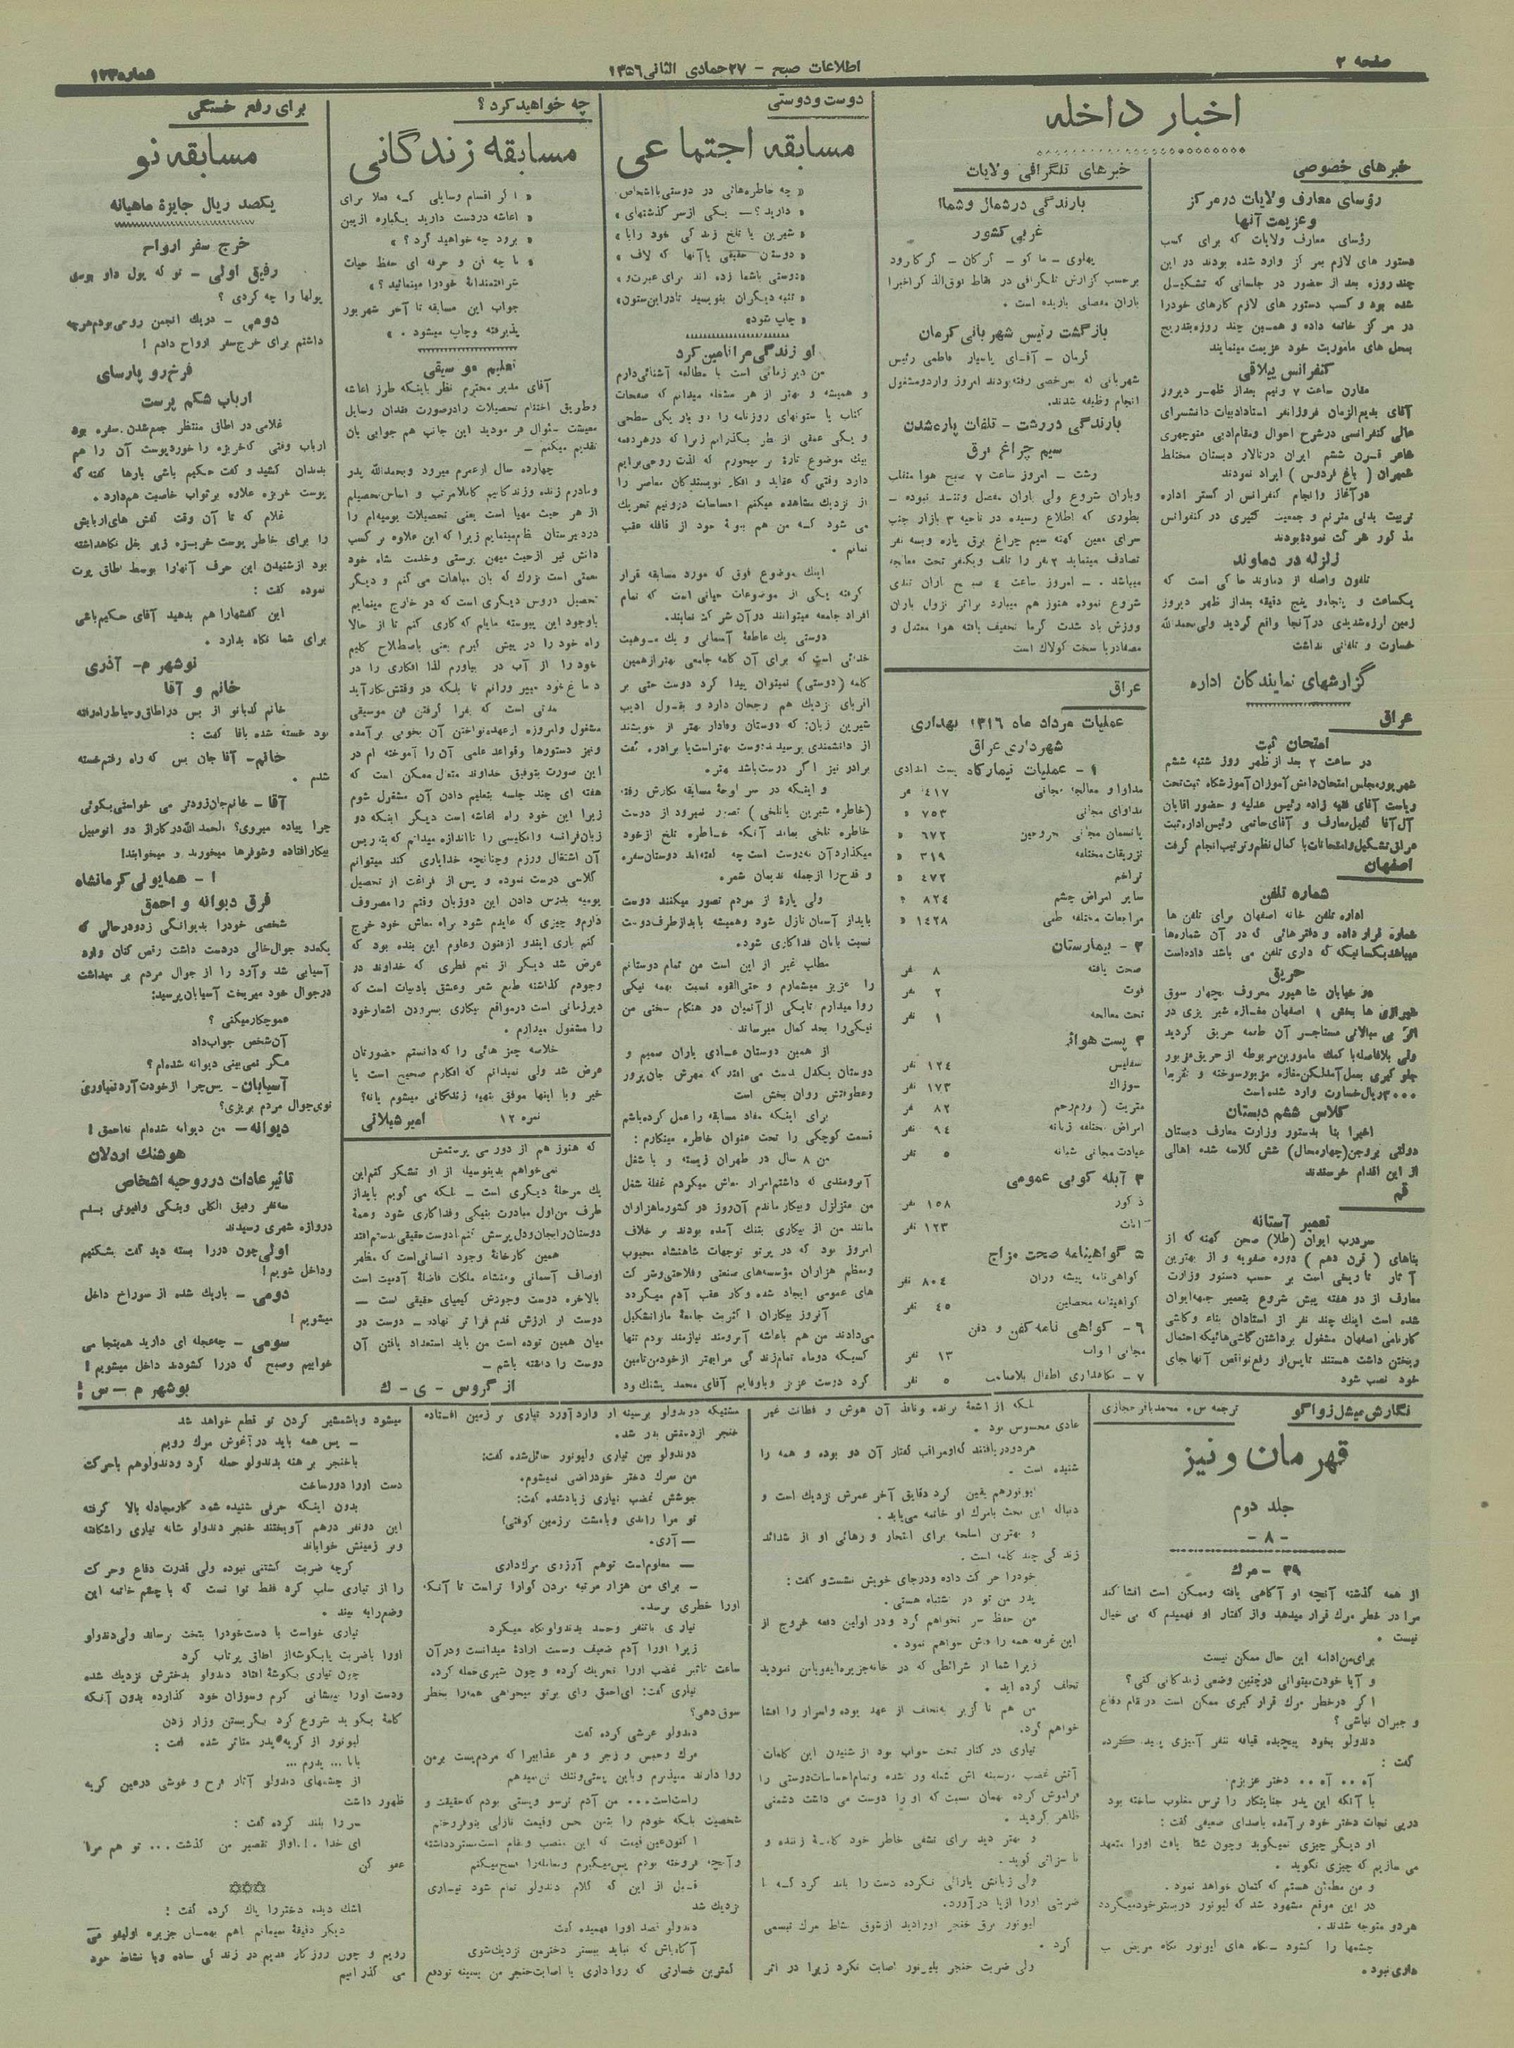 صفحه ۲
اطلاعات صبح - ۲۷ جمادی الثانی ۱۳۵۶
شماره ۱۲۳
اخبار داخله
خبرهای خصوصی
رؤسای معارف ولایات در مرکز
وعزیمت آنها
رؤسای معارف ولایات که برای کسب
دستور های لازم بمرکز وارد شده بودند در این
چند روزه بعد از حضور در جلساتی که تشکیل
شده بود و کسب دستور های لازم کارهای خودرا
در مرکز خاتمه داده و همین چند روزه بتدریج
بمحل های ماموریت خود عزیمت مینمایند
کنفرانس ییلاقی
مقارن ساعت ۷ ونیم بعداز ظهر دیروز
آقای بدیع‌الزمان فروزانفر استادادبیات دانشسرای
عالی کنفرانسی درشرح احوال ومقام‌ادبی منوچهری
شاعر قرن ششم ایران درتالار دبستان مختلط
شمیران (باغ فردوس) ایراد نمودند
درآغاز وانجام کنفرانس ارکستر اداره
تربیت بدنی مترنم و جمعیت کثیری در کنفرانس
مذکور شرکت نموده‌بودند
زلزله در دماوند
تلفون واصله از دماوند حاکی است که
یکساعت و پنجاه و پنج دقیقه بعداز ظهر دیروز
زمین لرزه‌شدیدی درآنجا واقع گردید ولی‌بحمدالله
خسارت و تلفاتی نداشت
گزارشهای نمایندگان اداره
عراق
امتحان ثبت
در ساعت ۲ بعد از ظهر روز شنبه ششم
شهریور مجلس امتحان دانش آموزان آموزشگاه ثبت تحت
ریاست آقای فقیه زاده رئیس عدلیه و حضور اقایان
آل‌آقا کفیل معارف و آقای حاتمی رئیس اداره ثبت
عراق تشکیل وامتحانات با کمال نظم وترتیب انجام گرفت
اصفهان
شماره تلفن
اداره تلفن خانه اصفهان برای تلفن ها
شماره قرار داده و دفتر هائی که در آن شماره‌ها
میباشد بکسانیکه که داری تلفن می باشد داده‌است
حریق
در خیابان شاهپور معروف بچهار سوق
شیرازی ها بخش ۱ اصفهان مغازه شیر یزی در
اثر بی مبالاتی مستاجر آن طعمه حریق گردید
ولی بلافاصله با کمک مامورین مربوطه از حریق مزبور
جلو گیری بعمل آمد لکن مغازه مزبور سوخته و تقریبا
۳۰۰۰ ریال خسارت وارد شده است
کلاس ششم دبستان
اخیرا بنا بدستور وزارت معارف دبستان
دولتی بروجن (چهارمحال) شش کلاسه شده اهالی
از این اقدام خرسندند
قم
تعمیر آستانه
سردرب ایوان (طلا) صحن کهنه که از
بناهای (قرن دهم) دوره صفویه و از بهترین
آثار تاریخی است بر حسب دستور وزارت
معارف از دو هفته پیش شروع بتعمیر جبهه‌ایوان
شده است اینک چند نفر از استادان بناء و کاشی
کار نامی اصفهان مشغول برداشتن کاشی هائیکه احتمال
ریختن داشت هستند تا پس از رفع نواقص آنها بجای
خود نصب شود
خبرهای تلگرافی ولایات
بارندگی در شمال وشمال
غربی کشور
پهلوی - ماکو - گرگان - گرگانرود
برحسب گزارش تلگرافی در نقاط فوق‌الذکر اخیرا
باران مفصلی باریده است.
بازگشت رئیس شهربانی کرمان
کرمان - آقای یاسیار فاطمی رئیس
شهربانی که بمرخصی رفته‌بودند امروز وارد و مشغول
انجام وظیفه شدند.
بارندگی در رشت - تلفات پاره‌شدن
سیم چراغ برق
رشت - امروز ساعت ۷ صبح هوا منقلب
وباران شروع ولی باران مفصل وتند نبوده -
بطوری که اطلاع رسیده در ناحیه ۳ بازار جنب
سرای معین کهنه سیم چراغ برق پاره و بسه نفر
تصادف مینماید ۲ نفر را تلف ویکنفر تحت معالجه
میباشد. - امروز ساعت ۴ صبح باران تندی
شروع نموده هنوز هم میبارد براثر نزول باران
ووزش باد شدت گرما تخفیف یافته هوا معتدل و
مصفا دریا سخت کولاک است
عراق
عملیات مرداد ماه ۱۳۱۶ بهداری
شهرداری عراق
۱ - عملیات تیمارگاه پست امدادی
مداوا و معالجه مجانی ۴۱۷ نفر
مداوای مجانی ۷۵۳ »
پانسمان مجانی مجروحین ۶۷۲ »
تزریقات مختلفه ۳۱۹ »
تراخم ۴۷۲ »
سایر امراض چشم ۸۲۴ »
مراجعات مختلفه طبی ۱۴۲۸ »
۲ - بیمارستان
صحت یافته ۸ نفر
فوت ۲ نفر
تحت معالجه ۱ نفر
سفلیس ۱۲۴ نفر
سوزاک ۱۷۳ نفر
متریت (ورم رحم ۸۲ نفر
امراض مختلفه زنانه ۹۴ نفر
عیادت مجانی شبانه ۵ نفر
۴ آبله کوبی عمومی
ذکور ۱۵۸ نفر
اناث ۱۲۳ نفر
۵ گواهینامه صحت مزاج
گواهی‌نامه پیشه وران ۸۰۴ نفر
گواهینامه محصلین ۴۵ نفر
۶ - گواهی نامه کفن و دفن
مجانی اموات ۱۳ نفر
۷ - نگاهداری اطفال بلاصاحب ۵ نفر
دوست ودوستی
مسابقه اجتماعی
« چه خاطره‌هائی در دوستی بااشخاص
« دارید؟ - یکی از سر گذشتهای »
« شیرین یا تلخ زندگی خود رابا »
« دوستان حقیقی یا آنها که لاف »
« دوستی باشما زده اند برای عبرت و »
« تنبه دیگران بنویسید تادر این‌ستون »
« چاپ شود »
او زندگی مرا تامین کرد
من دیر زمانی است با مطالعه آشنائی‌دارم
و همیشه و بهتر از هر مشغله میدانم که صفحات
کتاب یا ستونهای روزنامه را دو بار یکی سطحی
و یکی عمقی از نظر بگذرانم زیرا که درهر دفعه
بیک موضوع تازه بر میخورم که لذت روحی برایم
دارد وقتی که عقاید و افکار نویسندگان معاصر را
از نزدیک مشاهده میکنم احساسات درونیم تحریک
می شود که من هم بنوبه خود از قافله عقب
نمانم.
اینک موضوع فوق که مورد مسابقه قرار
گرفته یکی از موضوعات حیاتی است که تمام
افراد جامعه میتوانند درآن شرکت نمایند.
دوستی یک عاطفهٔ آسمانی و یک موهبت
خدائی است که برای آن کلمه جامعی بهتر از همین
کلمه (دوستی) نمیتوان پیدا کرد دوست حتی بر
اقربای نزدیک هم رجحان دارد و بقول ادیب
شیرین زبان: که دوستان وفادار بهتر از خویشند
از دانشمندی پرسیدند دوست بهتر است یا برادر. گفت
برادر نیز اگر دوست باشد بهتر.
و اینکه در سر لوحهٔ مسابقه نگارش رفته
(خاطره شیرین یا تلخی) تصور نمیرود از دوست
خاطره تلخی بماند آنکه خاطره تلخ ازخود
میگذارد آن نه دوست است چه گفته‌اند دوستان سفره
و قدح را از جمله ندیمان شمر.
ولی پارهٔ از مردم تصور میکنند دوست
باید از آسمان نازل شود وهمیشه باید از طرف دوست
نسبت بانان فداکاری شود.
مطلب غیر از این است من تمام دوستانم
را عزیز میشمارم و حتی‌القوه نسبت بهمه نیکی
روا میدارم تایکی از آنمیان در هنگام سختی من
نیکی‌را بحد کمال میرساند
از همین دوستان عادی یاران صمیم و
دوستان یکدل بدست می افتد که مهرش جان‌پرور
وعطوفتش روان بخش است
برای اینکه مفاد مسابقه را عمل کرده‌باشم
قسمت کوچکی را تحت عنوان خاطره مینگارم:
من ۸ سال در طهران زیسته و با شغل
آبرومندی که داشتم امرار معاش میکردم غفلة شغل
من متزلزل وبیکار ماندم آن‌روز در کشور ماهزاران
مانند من از بیکاری بتنگ آمده بودند بر خلاف
امروز بود که در پرتو توجهات شاهنشاه محبوب
ومعظم هزاران مؤسسه‌های صنعتی وفلاحتی وشرکت
های عمومی ایجاد شده وکار عقب آدم میگردد
آنروز بیکاران اکثریت جامعهٔ مارا تشکیل
می‌دادند من هم باعائله آبرومند نیازمند بودم تنها
کسیکه دوماه تمام زندگی مرا بهتر از خود من تامین
کرد دوست عزیز وباوفایم آقای محمد پشنگ بود
چه خواهید کرد؟
مسابقه زندگانی
« اگر اقسام وسایلی که فعلا برای
« اعاشه دردست دارید یکباره ازبین
« برود چه خواهید کرد؟ »
« با چه فن و حرفه ای حفظ حیات
« شرافتمندانهٔ خودرا مینمائید؟ »
جواب این مسابقه تا آخر شهریور
پذیرفته وچاپ میشود.
تعلیم موسیقی
آقای مدیر محترم نظر باینکه طرز اعاشه
وطریق اختتام تحصیلات رادر صورت فقدان وسایل
معیشت سئوال فرمودید این جانب هم جوابی بان
تقدیم میکنم -
چهارده سال از عمرم میرود وبحمدالله پدر
ومادرم زنده وزندگانیم کاملا مرتب و اساس تحصیلم
از هر حیث مهیا است یعنی تحصیلات یومیه‌ام را
دردبیرستان نظام مینمایم زیرا که این علاوه بر کسب
دانش نیز ازحیث میهن پرستی وخدمت بشاه خود
نعمتی است بزرگ که بان مباهات می کنم و دیگر
تحصیل دروس دیگری است که در خارج مینمایم
باوجود این پیوسته مایلم که کاری کنم تا از حالا
راه خود را در پیش گیرم یعنی باصطلاح گلیم
خود را از آب در بیاورم لذا افکاری را در
دماغ خود می‌پرورانم تا بلکه در وقتش بکار آید
مدتی است که بفرا گرفتن فن موسیقی
مشغول وامروزه ازعهده نواختن آن بخوبی برآمده
ونیز دستورها وقواعد علمی آن را آموخته ام در
این صورت بتوفیق خداوند متعال ممکن است که
هفته ای چند جلسه بتعلیم دادن آن مشغول شوم
زیرا این خود راه اعاشه است دیگر اینکه دو
زبان فرانسه وانگلیسی را تااندازه میدانم که بتدریس
آن اشتغال ورزم وچنانچه خدایاری کند میتوانم
کلاسی درست نموده و پس از فراغت از تحصیل
یومیه بدرس دادن این دوزبان وقتم را مصروف
دارم و چیزی که عایدم شود براه معاش خود خرج
کنم باری ایندو ازفنون وعلوم این بنده بود که
عرض شد دیگر از نعم فطری که خداوند در
وجودم گذاشته طبع شعر وعشق بادبیات است که
دیرزمانی است درمواقع بیکاری بسرودن اشعار خود
را مشغول میدارم.
خلاصه چیز هائی را که دانستم حضورتان
عرض شد ولی نمیدانم که افکارم صحیح است یا
خیر وبا اینها موفق بتهیهٔ زندگانی میشوم یانه؟
نمره ۱۲ امیر شیلاتی
که هنوز هم از دور می پرستمش
نمی‌خواهم بدینوسیله از او تشکر کنم این
یک مرحلهٔ دیگری است - بلکه می گویم باید از
طرف من اول مبادرت بنیکی وفداکاری شود وهمهٔ
دوستان را بجان ودل پرستش کنم تا دوست حقیقی بدستم افتد
همین کارخانهٔ وجود انسانی است که مظهر
اوصاف آسمانی ومنشاء ملکات فاضلهٔ آدمیت است
بالاخره دوست وجودش کیمیای حقیقی است -
دوست از ارزش قدم فراتر نهاده - دوست در
میان همین توده است من باید استعداد یافتن آن
دوست را داشته باشم -
از گروس - ی - ک
برای رفع خستگی
مسابقه نو
یکصد ریال جایزهٔ ماهیانه
خرج سفر ارواح
رفیق اولی - تو که پول دار بودی
پولها را چه کردی؟
دومی - دریک انجمن روحی بودم هرچه
داشتم برای خرج سفر ارواح دادم!
فرخ‌رو پارسای
ارباب شکم پرست
غلامی در اطاق منتظر جمع‌شدن سفره بود
ارباب وقتی که خربزه را خورد پوست آن را هم
بدندان کشید و گفت حکیم باشی بارها گفته که
پوست خربزه علاوه برثواب خاصیت هم‌دارد.
غلام که تا آن وقت کفش های اربابش
را برای خاطر پوست خربزه زیر بغل نگاهداشته
بود ازشنیدن این حرف آنهارا بوسط اطاق پرت
نموده گفت:
این کفشهاراهم بدهید آقای حکیم‌باشی
برای شما نگاه بدارد.
نوشهر م - آذری
خانم و آقا
خانم کدبانو از بس در اطاق وحیاط راه‌رفته
بود خسته شده باقا گفت:
خانم - آقا جان بس که راه رفتم خسته
شدم.
آقا - خانم‌جان زودتر می خواستی بگوئی
چرا پیاده میروی؟ الحمدالله در گاراژ دو اتومبیل
بیکار افتاده وشوفرها میخورند و میخوابند!
۱ - همایونی کرمانشاه
فرق دیوانه و احمق
شخصی خودرا بدیوانگی زد ودر حالی که
یکعدد جوال خالی دردست داشت رقص کنان وارد
آسیابی شد وآرد را از جوال مردم بر میداشت
درجوال خود میریخت آسیابان پرسید:
عمو چکار میکنی؟
آن شخص جواب داد
مگر نمی‌بینی دیوانه شده‌ام؟
آسیابان - پس چرا ازخودت آرد نمیاوری
توی جوال مردم بریزی؟
دیوانه - من دیوانه شده‌ام نه‌احمق!
هوشنک اردلان
تاثیر عادات در روحیه اشخاص
سه‌نفر رفیق الکلی وبنگی وافیونی بدم
دروازه شهری رسیدند
اولی چون دررا بسته دید گفت بشکنیم
وداخل شویم!
دومی - باریک شده از سوراخ داخل
میشویم!
سومی - چه‌عجله ای دارید همینجا می
خوابیم وصبح که دررا گشودند داخل میشویم!
بوشهر م - س!
نگارش میشل زواگو
ترجمه س. محمدباقر حجازی
قهرمان ونیز
جلد دوم
- ۸ -
۳۹ - مرگ
از همه گذشته آنچه او آگاهی یافته وممکن است افشا کند
مرا در خطر مرگ قرار میدهد واز گفتار او فهمیدم که بی خیال
نیست.
برای‌من ادامه این حال ممکن نیست
و آیا خودت میتوانی درچنین وضعی زندگانی کنی؟
اگر درخطر مرگ قرار گیری ممکن است در مقام دفاع
و جبران نباشی؟
دندولو بخود پیچیده قیافه تنفر آمیزی پدید کرده
گفت:
آه... آه... دختر عزیزم.
با آنکه این پدر جنایتکار را ترس مغلوب ساخته بود
درپی نجات دختر خود برآمده باصدای ضعیفی گفت:
او دیگر چیزی نمیگوید وچون شفا یافت اورا متعهد
می سازیم که چیزی نگوید.
و من مطمئن هستم که کتمان خواهد نمود.
در این موقع مشهود شد که لیونور دربستر خود میگردد
هردو متوجه شدند.
چشمها را گشود نگاه های لیونور نگاه مریض
عادی نبود.
بلکه از اشعهٔ برنده ونافذ آن هوش و فطانت غیر
عادی محسوس بود.
هردو دریافتند که او مراقب گفتار آن دو بوده و همه را
شنیده است.
لیونور هم یقین کرد دقایق آخر عمرش نزدیک است و
دنباله این بحث بامرگ او خاتمه می‌یابد.
و بهترین اسلحه برای انتحار و رهائی او از شدائد
زندگی چند کلمه است.
خودرا حرکت داده ودر جای خویش نشست و گفت:
پدر من تو در اشتباه هستی.
من حفظ سر نخواهم کرد ودر اولین دفعه خروج از
این غرفه همه را فاش خواهم نمود.
زیرا شما از شرائطی که در خانه جزیره اولیولو بامن نمودید
تخلف کرده اید.
من هم ناگزیر به‌تخلف از عهد بوده واسرار را افشا
خواهم کرد.
تیاری در کنار تخت خواب بود از شنیدن این کلمات
آتش غضب درسینه اش شعله ور شده وتمام احساسات دوستی را
فراموش کرده بهمان نسبت که او را دوست می داشت دشمنی
ظاهر گردید.
و بهتر دید برای تشفی خاطر خود کلمهٔ زننده و
ناسزائی گوید.
ولی زبانش یارائی نکرده دست را بلند کرد که با
ضربتی اورا ازپا درآورد.
لیونور برق خنجر اورا دید از شوق نشاط مرگ تبسمی
کرد.
ولی ضربت خنجر بلیونور اصابت نکرد زیرا در اثر
مشتیکه دندولو برسینه او واردآورد تیاری بر زمین افتاده
خنجر ازدستش بدر شد.
دندولو بین تیاری ولیونور حائل‌شده گفت:
من بمرگ دختر خودراضی نمیشوم.
جوشش غضب تیاری زیادشده گفت:
تو مرا زدی وبامشت برزمین کوفتی؟
- آری.
- معلوم است توهم آرزوی مرگ‌داری
- برای من هزار مرتبه مردن گوارا تر است تا آنکه
اورا خطری برسد.
تیاری باتنفر وحسد بدندولو نگاه میکرد
زیرا اورا آدم ضعیف وسست ارادهٔ میدانست ودرآن
ساعت تاثیر غضب اورا تحریک کرده و چون شیری حمله کرده
تیاری گفت: ای‌احمق رای برتو میخواهی همه‌را بخطر
سوق دهی؟
دندولو غرشی کرده گفت
مرگ وحبس و زجر و هر عذابیرا که مردم پست برمن
روا دارند میپذیرم وباین پستی وننگ تن نمیدهم
راست‌است... من آدم ترسو وپستی بودم که حقیقت و
شخصیت بلکه خودم را بثمن بخس وقیمت نازلی بتو فروختم
اکنون عین قیمت که این منصب و مقام است مسترد داشته
وآنچه فروخته بودم پس میگیرم ومعامله‌را فسخ میکنم
قبل از این که کلام دندولو تمام شود تیاری
نزدیک شد
دندولو قصد اورا فهمیده گفت
آگاه‌باش که نباید ببستر دخترمن نزدیک شوی
کمترین خسارتی که روا داری با اصابت خنجر من بسینه تو دفع
میشود وباشمشیر گردن تو قطع خواهد شد
- پس همه باید درآغوش مرگ رویم
باخنجر برهنه بدندولو حمله کرد ودندولوهم باحرکت
دست اورا دورساخت
بدون اینکه حرفی شنیده شود کارمجادله بالا گرفته
این دونفر درهم آویختند خنجر دندولو شانه تیاری راشکافته
وبر زمینش خواباند
گرچه ضربت کشتنی نبوده ولی قدرت دفاع وحرکت
را از تیاری سلب کرد فقط توانست که با چشم خاتمه این
وضع‌را به بیند.
تیاری خواست با دست‌خودرا بتخت برساند ولی‌دندولو
اورا باضربت پابگوشه‌از اطاق پرتاب کرد
چون تیاری بگوشهٔ افتاد دندولو بدخترش نزدیک شده
ودست اورا به‌پیشانی گرم وسوزان خود گذارده بدون آنکه
کلمهٔ بگوید شروع کرد بگریستن وزار زدن
لیونور از گریهٔ پدر متاثر شده گفت:
بابا... پدرم...
از چشمهای دندولو آثار فرح و خوشی درعین گریه
ظهور داشت
سر را بلند کرده گفت:
ای خدا... تو هم مرا
عفو کن
اشک دیده دختررا پاک کرده گفت:
دیگر دقیقهٔ نمیمانم باهم بهمان جزیره اولیولو می
رویم و چون روزگار قدیم در زندگی ساده وبا نشاط خود
می گذرانیم